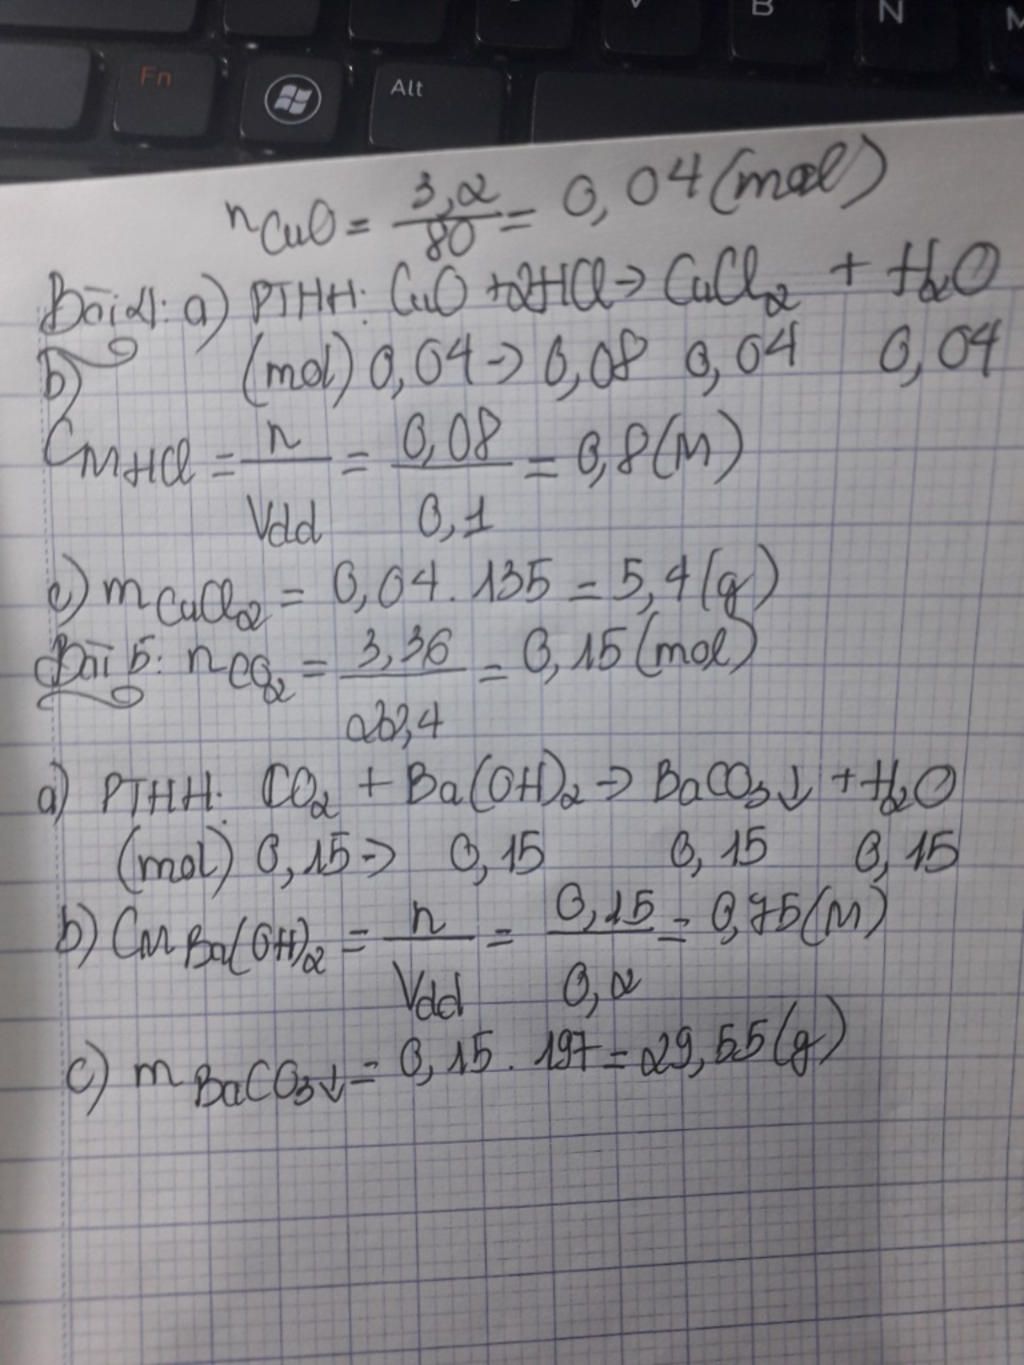 Fn
Alt
V
B
N
M
nCuO = 3,2/80 = 0,04 (mol)
Bài 4: a) PTHH: CuO + 2HCl → CuCl2 + H2O
(mol) 0,04 → 0,08 0,04 0,04
b)
CM HCl = n/Vdd = 0,08/0,1 = 0,8 (M)
c) mCuCl2 = 0,04 . 135 = 5,4 (g)
Bài 5: nCO2 = 3,36/22,4 = 0,15 (mol)
a) PTHH: CO2 + Ba(OH)2 → BaCO3↓ + H2O
(mol) 0,15 → 0,15 0,15 0,15
b) CM Ba(OH)2 = n/Vdd = 0,15/0,2 = 0,75 (M)
c) mBaCO3↓ = 0,15 . 197 = 29,55 (g)